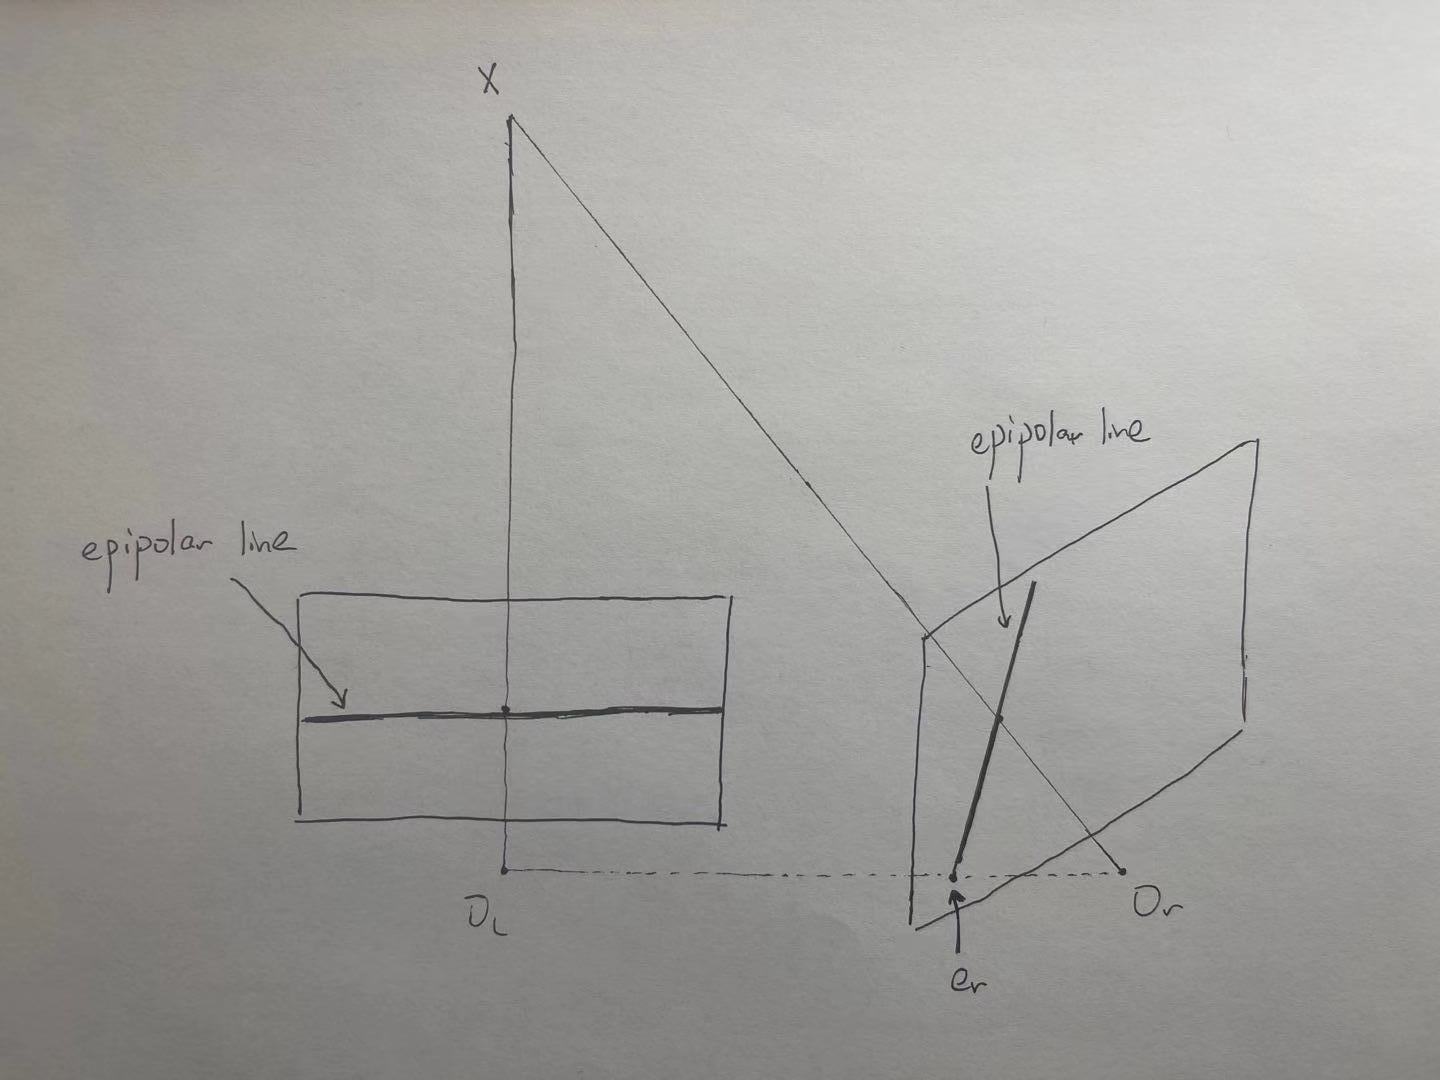 X
epipolar line
epipolar line
OL
Or
er